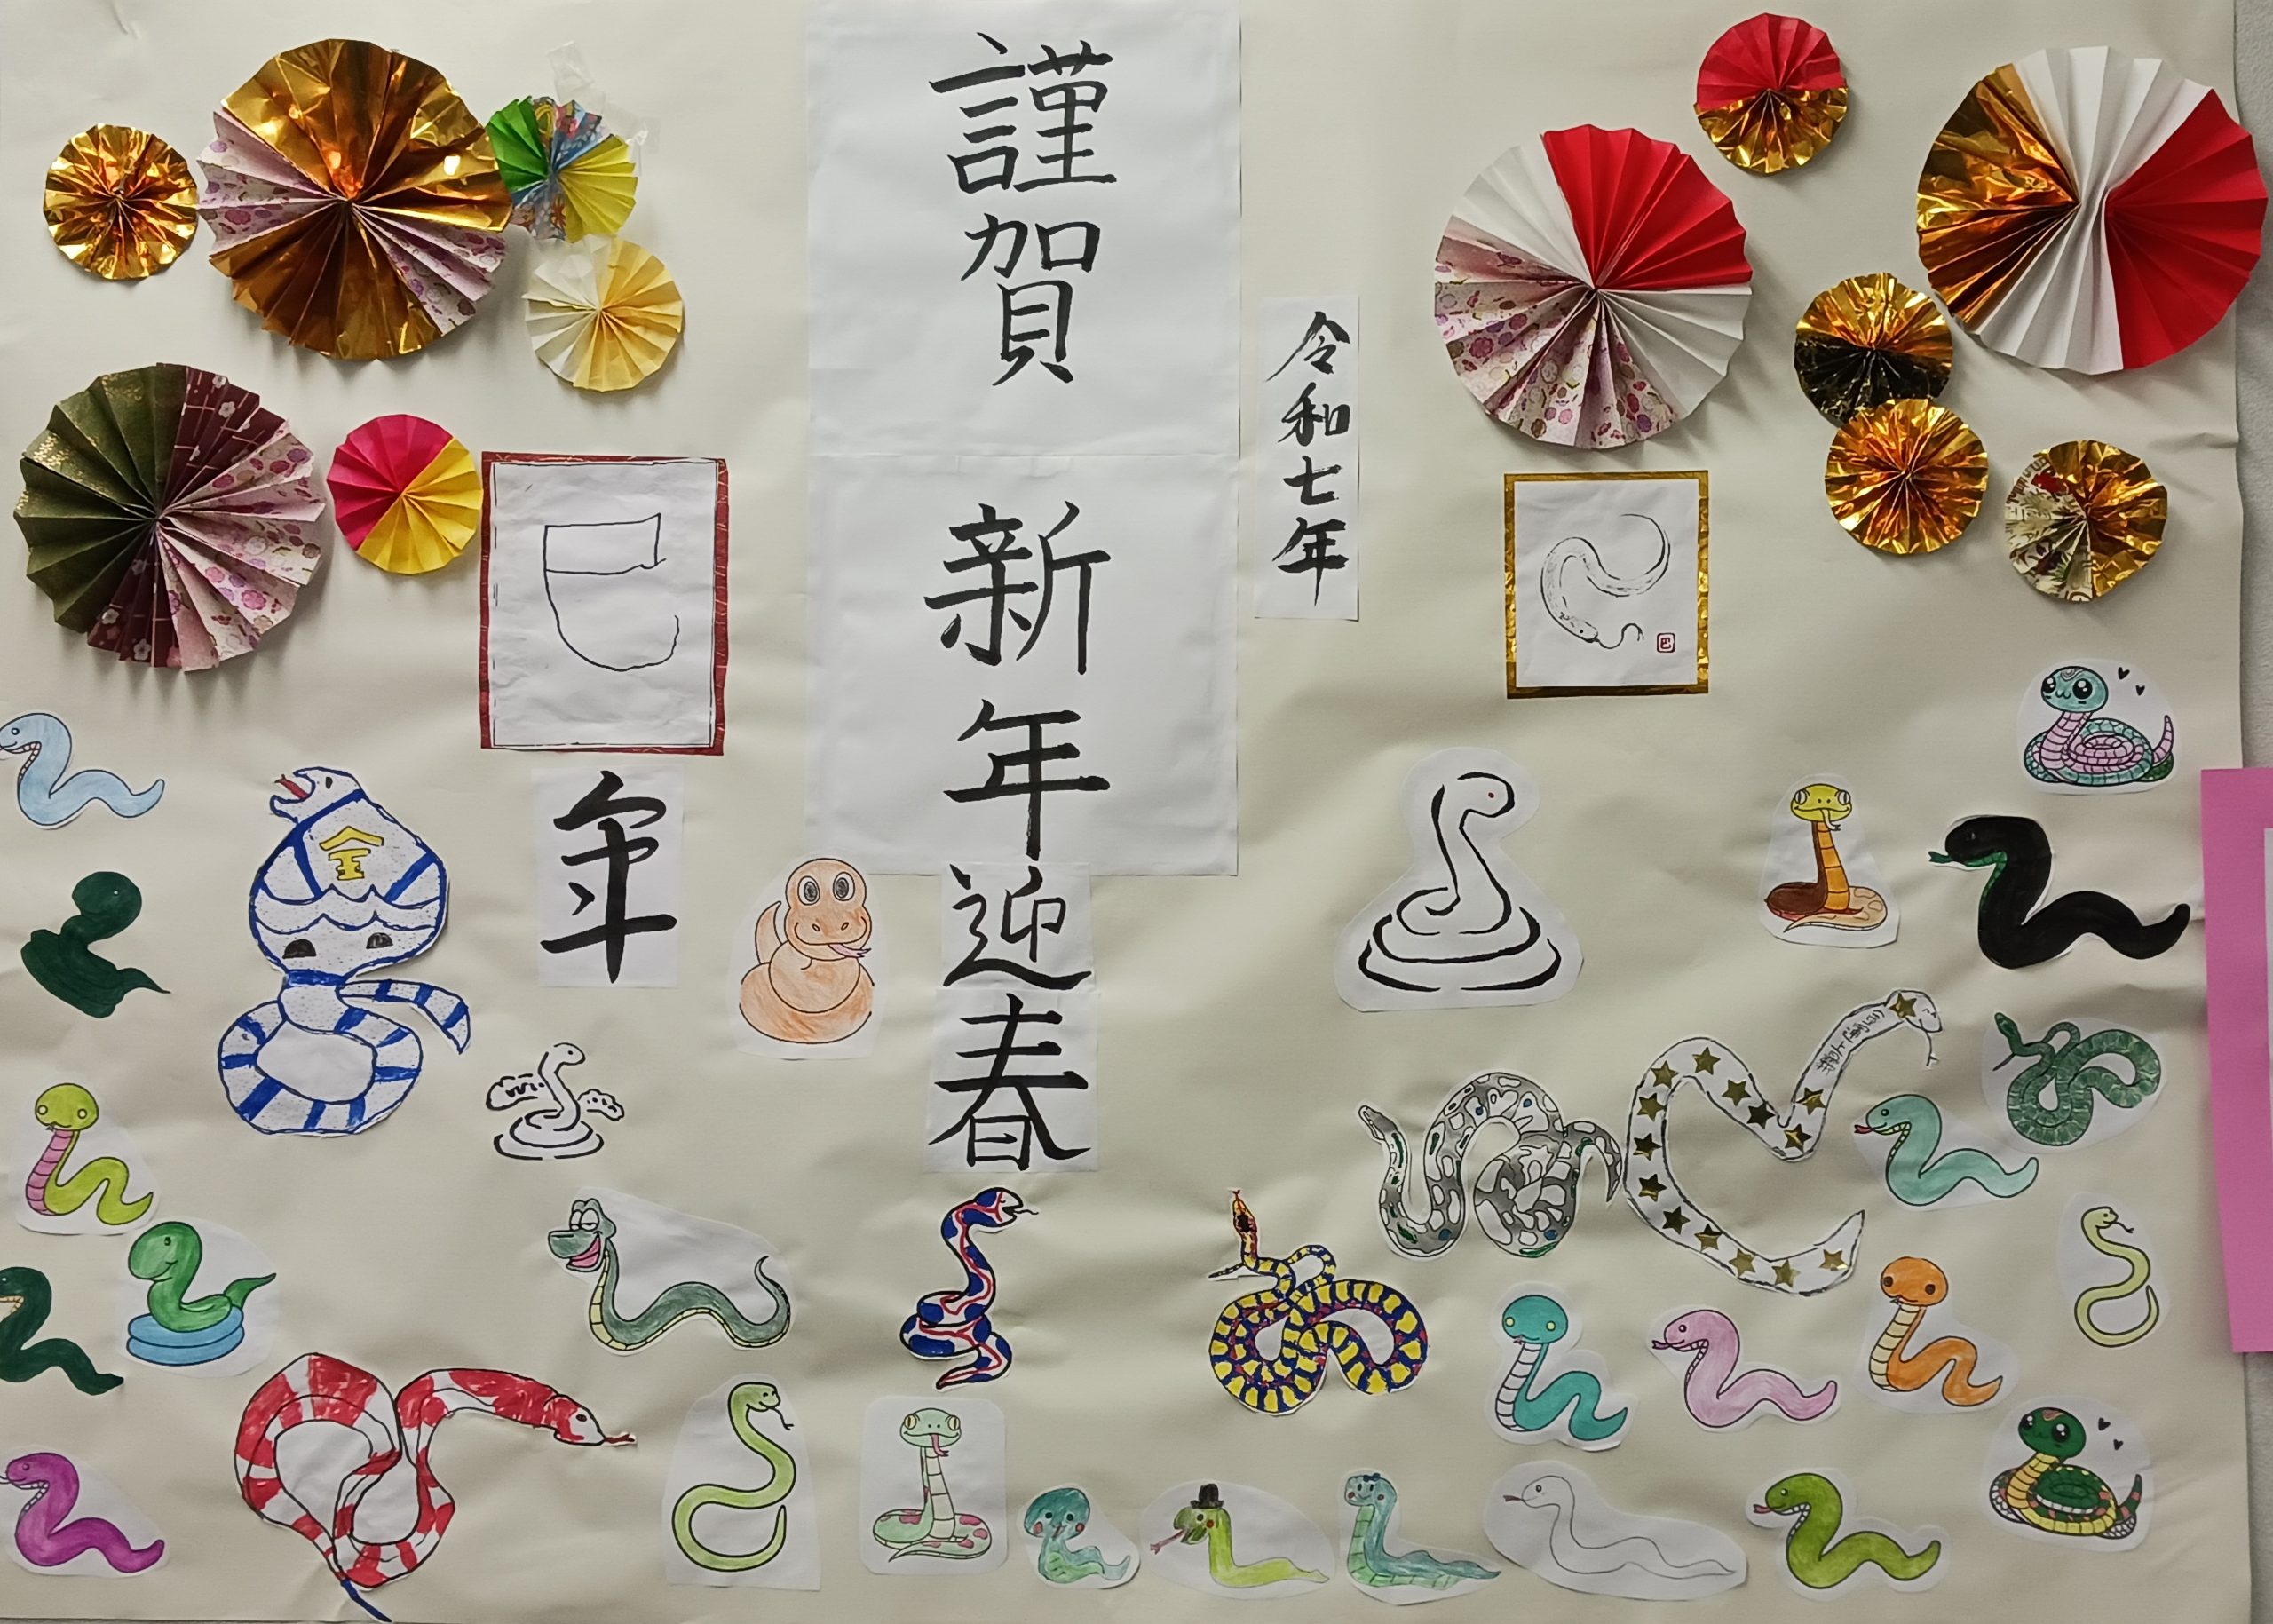 令和七年
謹賀
新年
迎春
巳
年
金
巳